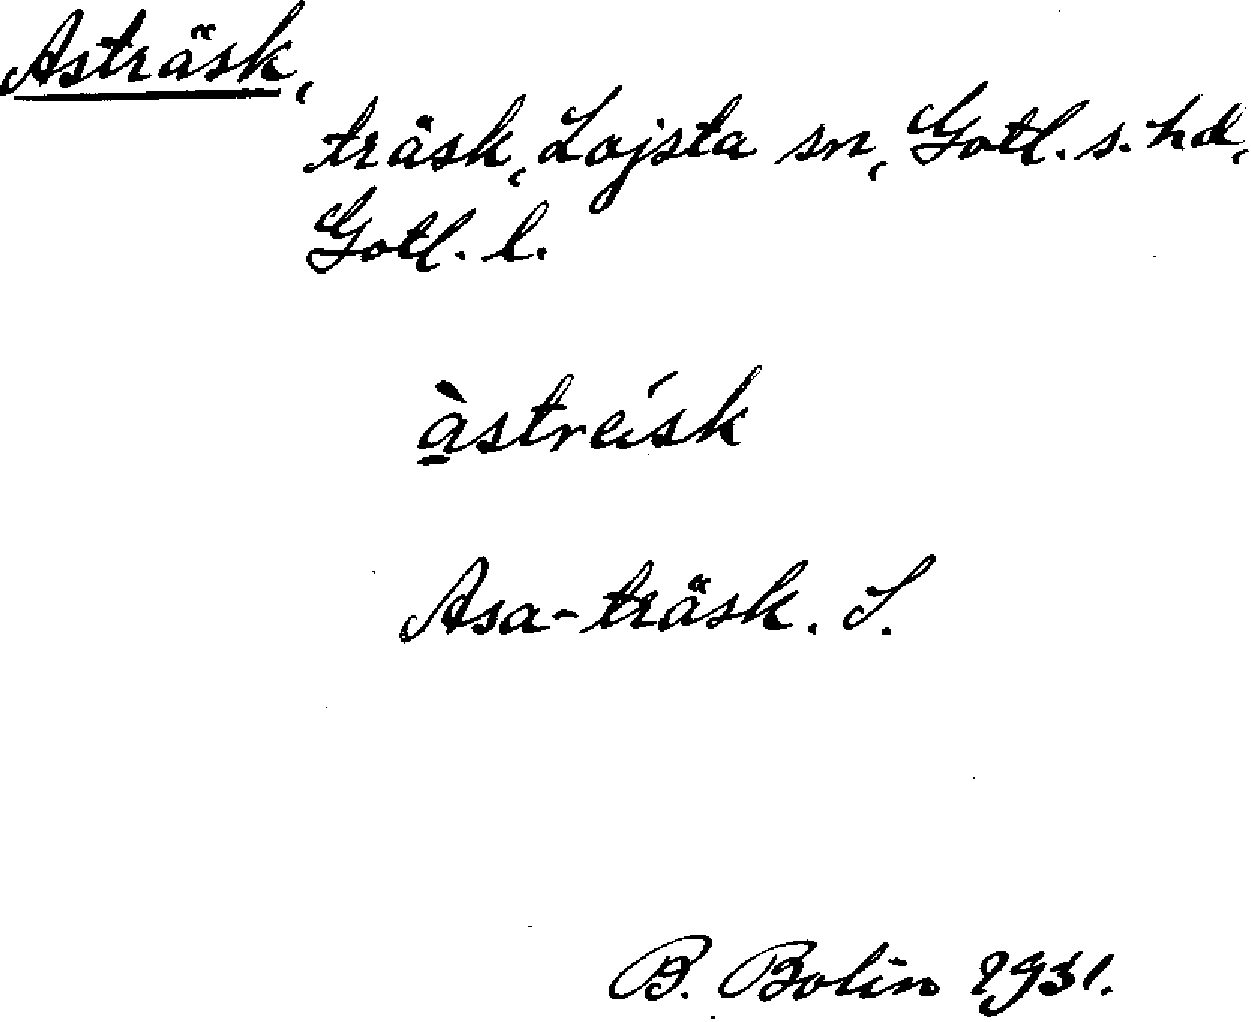 Asträsk,
träsk, Lojsta sn, Gotl. s. hd,
Gotl. l.
à̱streísk
Asa-träsk. S.
B. Bolin 1931.